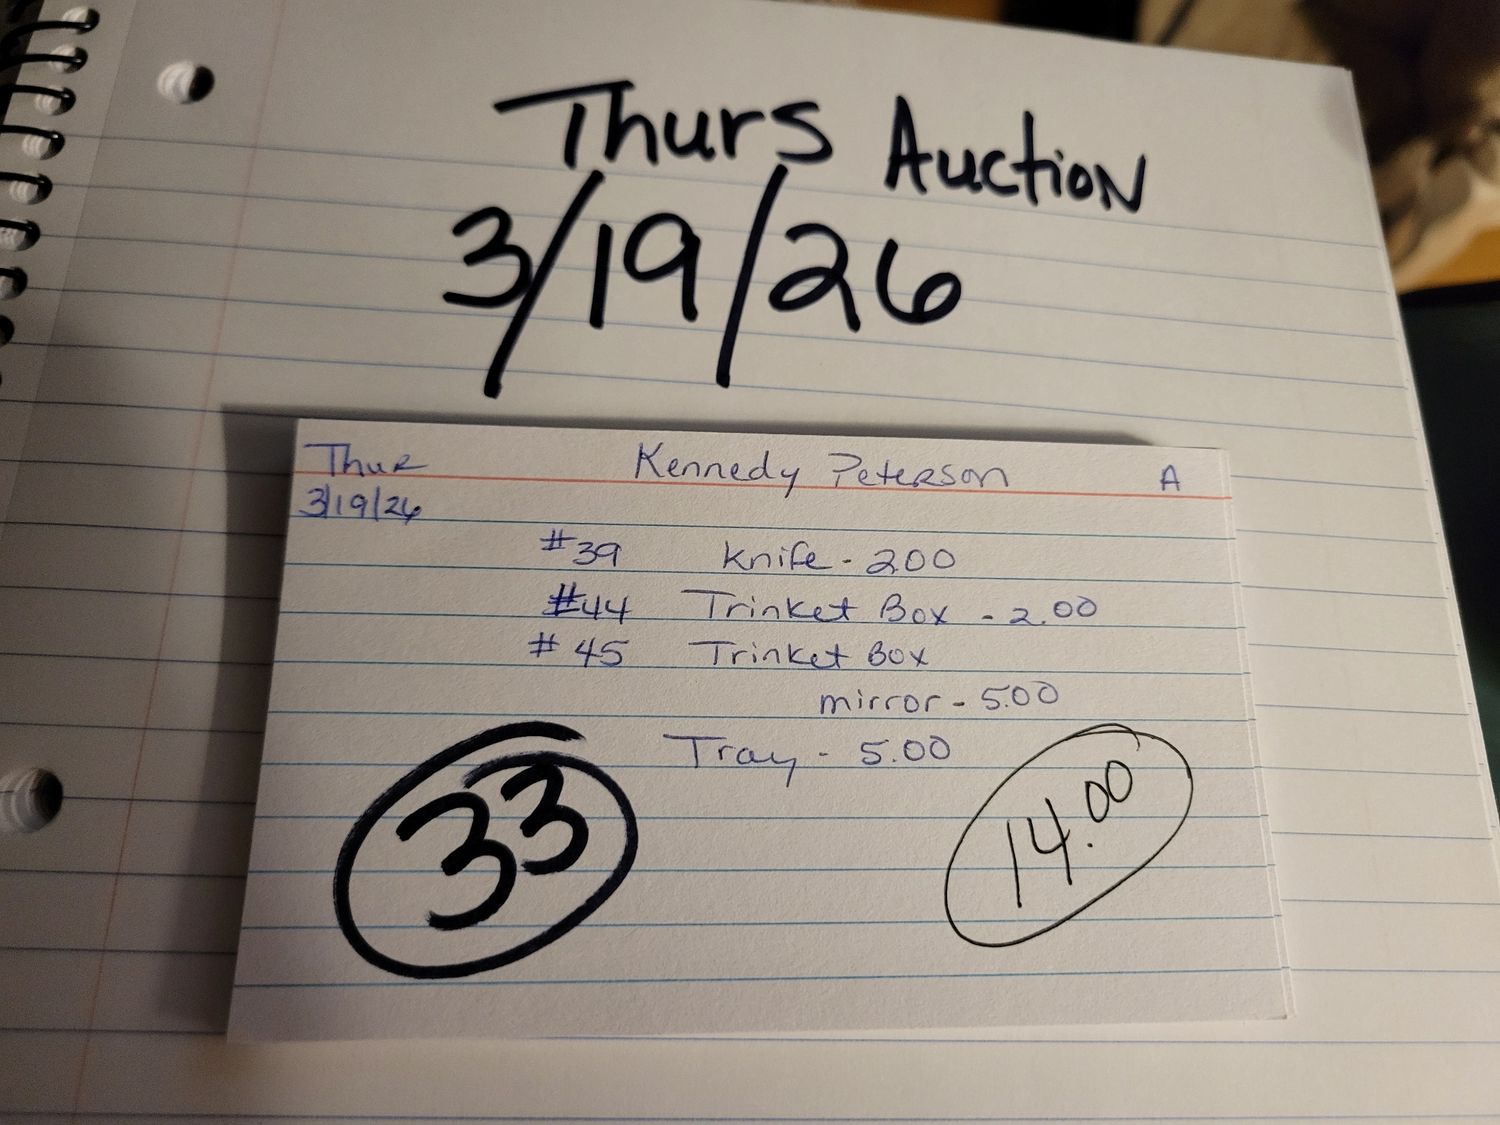 Thurs Auction
3/19/26
Thur Kennedy Peterson A
3/19/26
#39 Knife - 200
#44 Trinket Box - 2.00
#45 Trinket Box
mirror - 5.00
Tray - 5.00
33
14.00